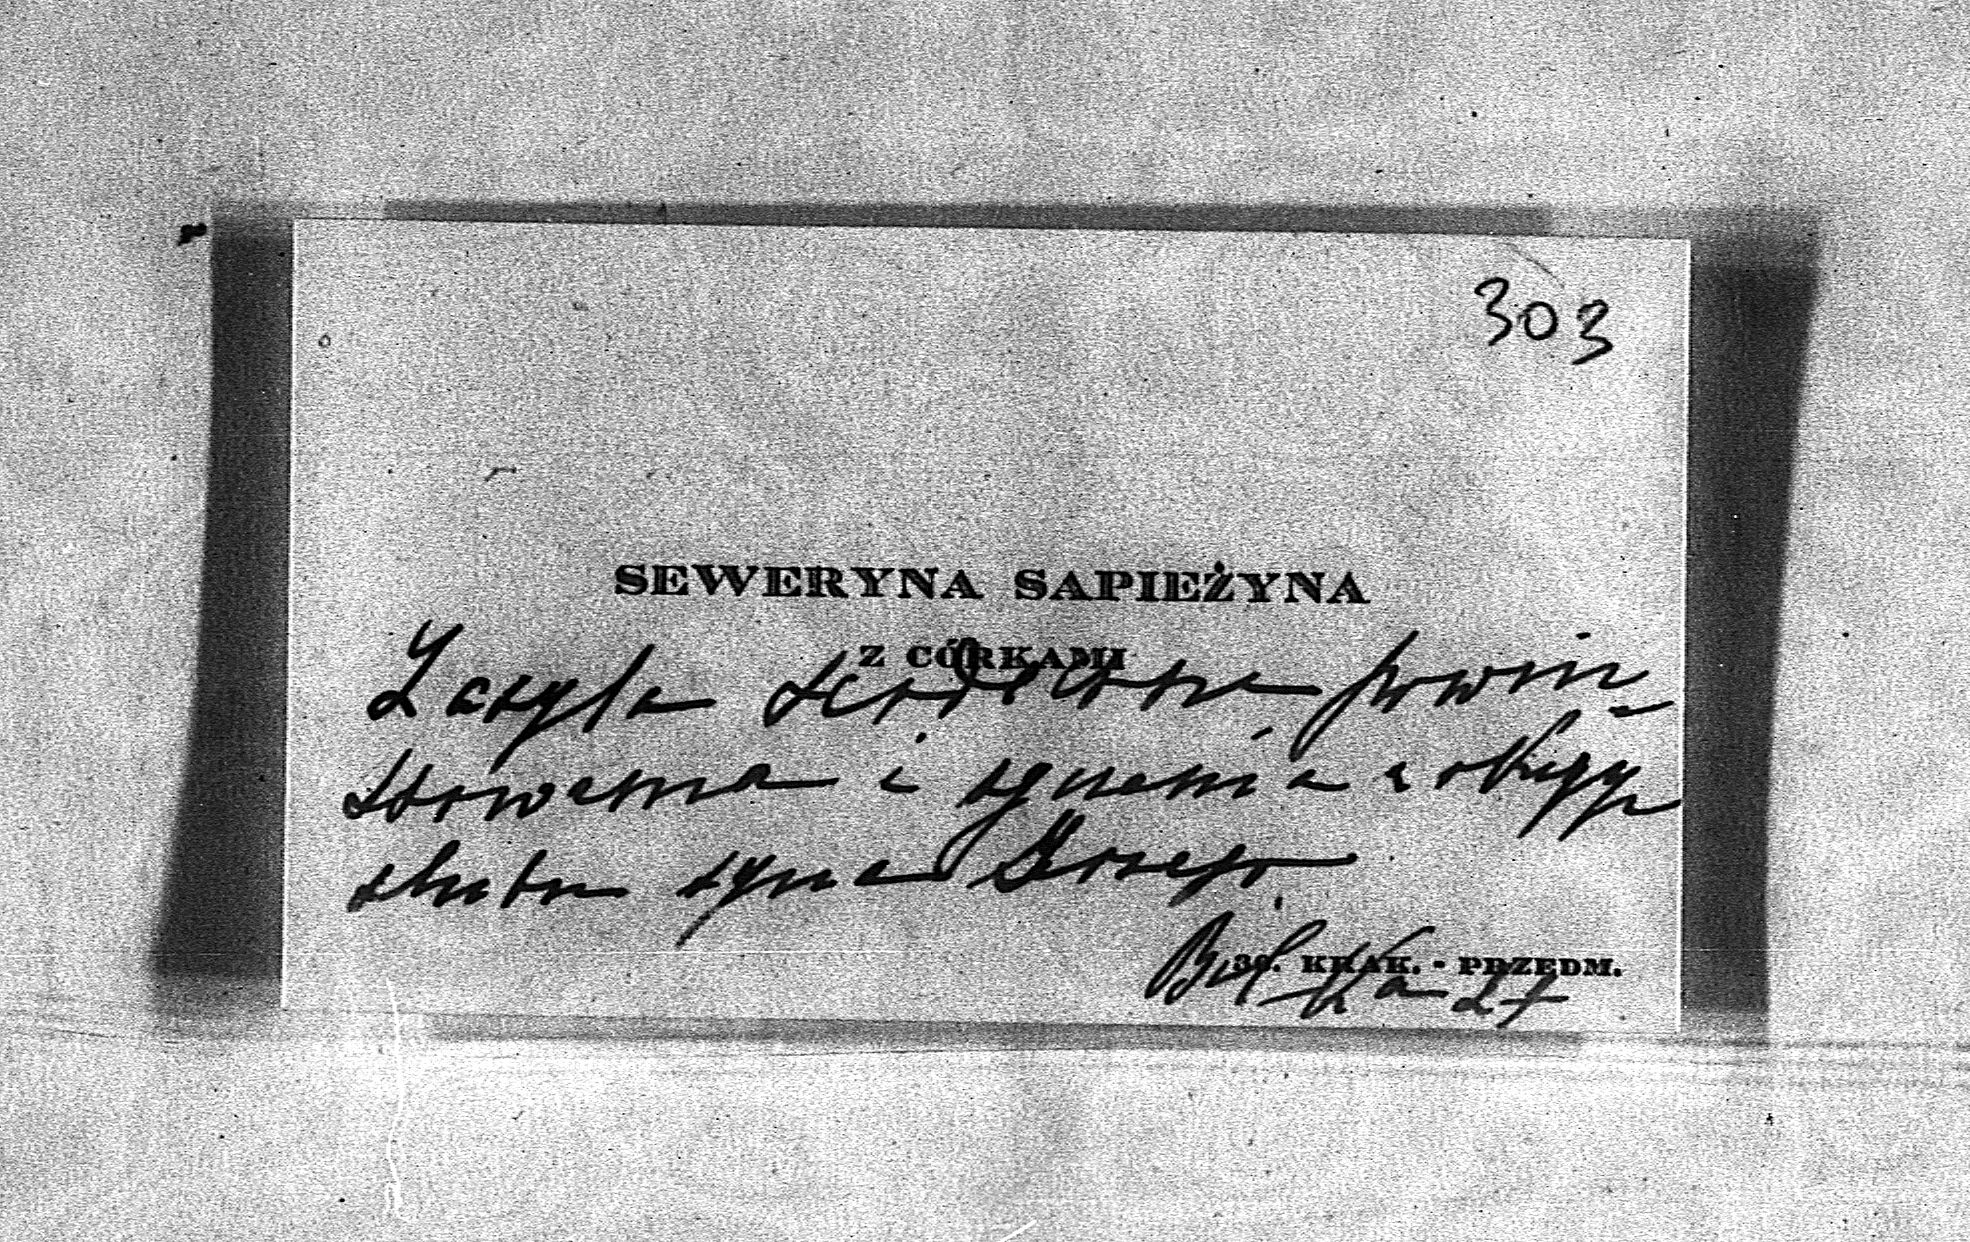 303
SEWERYNA SAPIEŻYNA
Z CÓRKAMI
Zasyła serdeczne powin-
szowania i życzenia z okazyi
ślubu syna
36. KRAK. - PRZEDM.
27